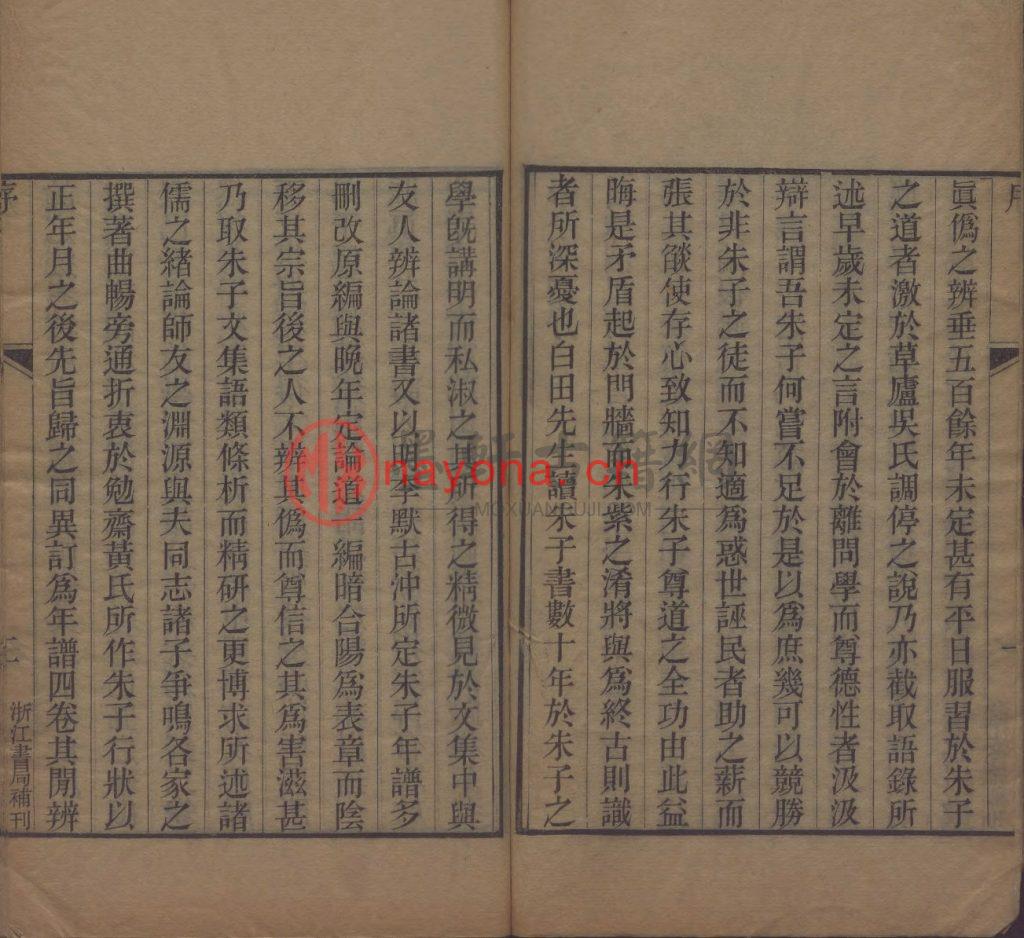 眞僞之辨垂五百餘年未定甚有平日服習於朱子
之道者激於草廬吳氏調停之說乃亦截取語錄所
述早歲未定之言附會於離問學而尊德性者汲汲
辯言謂吾朱子何嘗不足於是以爲庶幾可以競勝
於非朱子之徒而不知適爲惑世誣民者助之薪而
張其燄使存心致知力行朱子尊道之全功由此益
晦是矛盾起於門牆而朱紫之淆將與爲終古則識
者所深憂也白田先生讀朱子書數十年於朱子之
一
學旣講明而私淑之其所得之精微見於文集中與
友人辨論諸書又以明李默古沖所定朱子年譜多
刪改原編與晚年定論道一編暗合陽爲表章而陰
移其宗旨後之人不辨其僞而尊信之其爲害滋甚
乃取朱子文集語類條析而精研之更博求所述諸
儒之緒論師友之淵源與夫同志諸子爭鳴各家之
撰著曲暢旁通折衷於勉齋黃氏所作朱子行狀以
正年月之後先旨歸之同異訂爲年譜四卷其閒辨
序
二
浙江書局補刊
nayona.cn
墨軒古籍網
MOXUANGUJI.COM